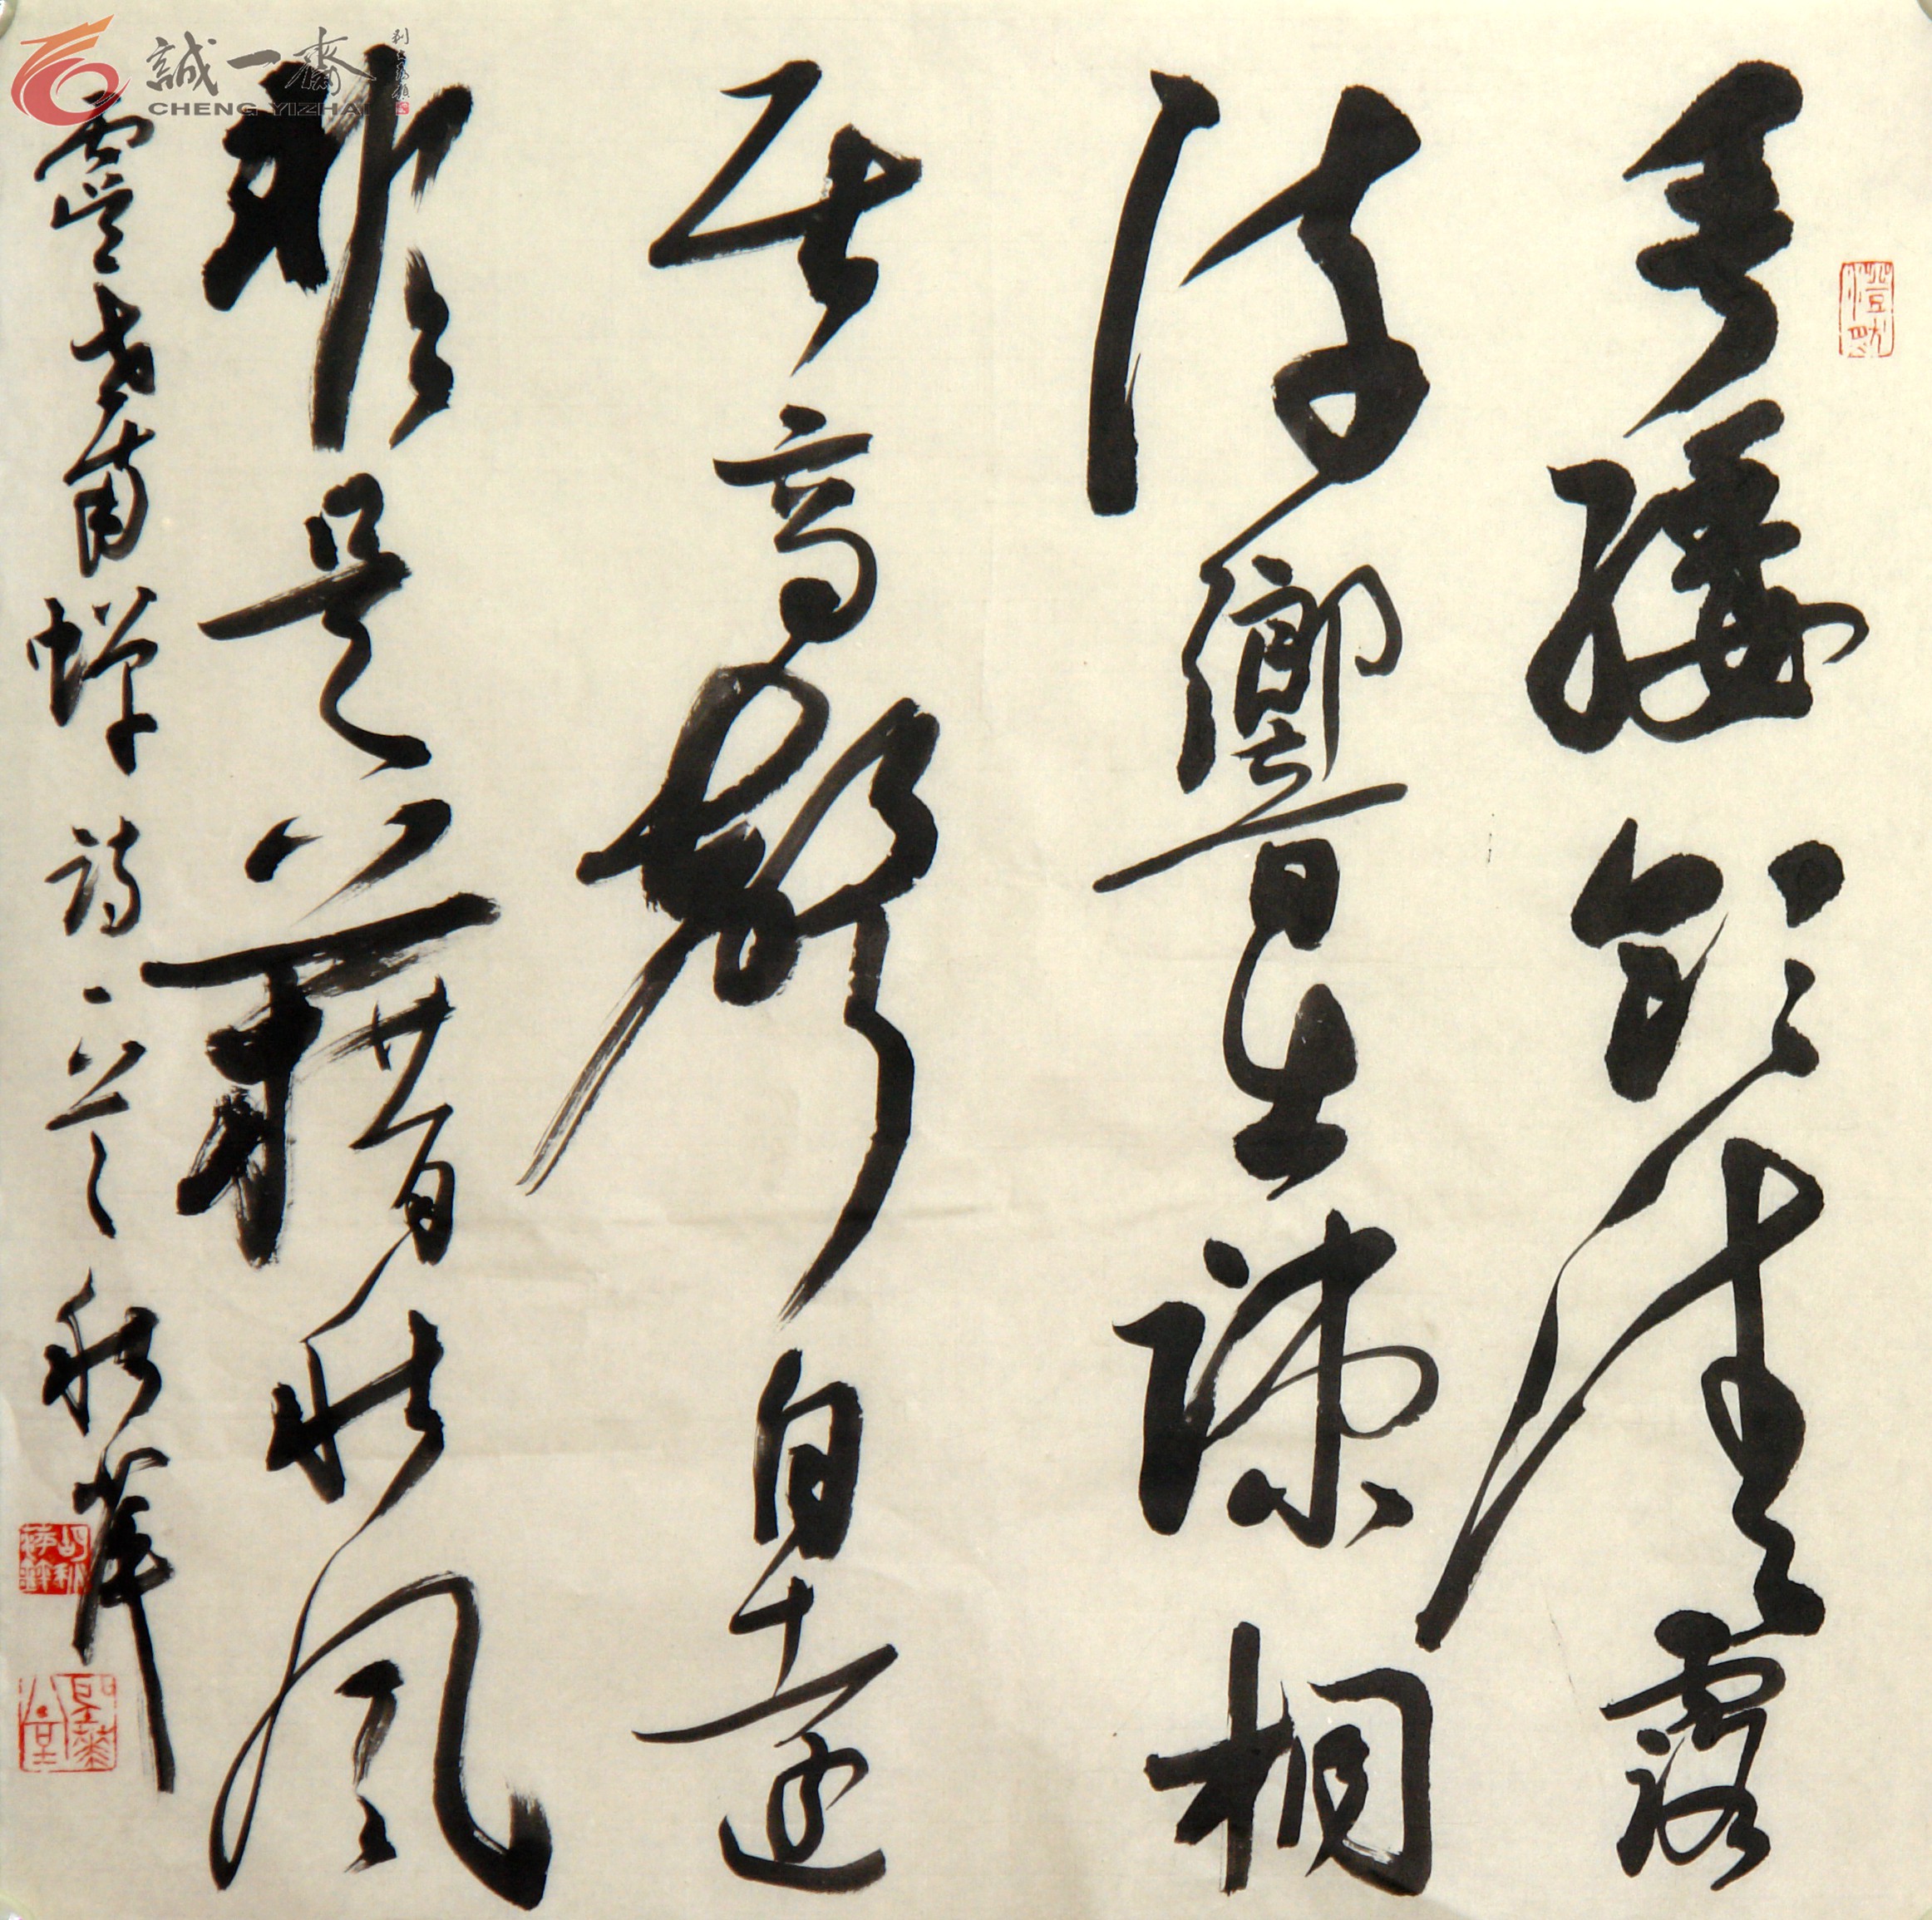 誠一齋
CHENG YIZHAI
垂緌飲清露
流響出疎桐
居高聲自遠
非是藉秋風
虞世南蝉詩一首 秋萍